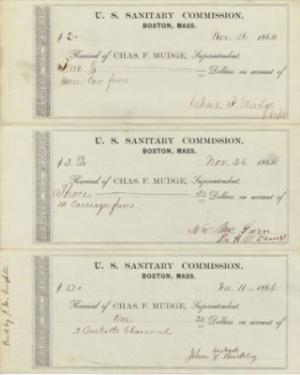 U. S. SANITARY COMMISSION,
BOSTON, MASS.
$ 2. Nov. 26 1864
Received of CHAS. F. MUDGE, Superintendent.
Dollars on account of
Horse Car fares
Chas. F. Mudge
U. S. SANITARY COMMISSION,
BOSTON, MASS.
$ 3. Nov. 26 1864
Received of CHAS. F. MUDGE, Superintendent.
Three Dollars on account of
Carriage fares.
U. S. SANITARY COMMISSION,
BOSTON, MASS.
11 1864
Received of CHAS. F. MUDGE, Superintendent.
One 20 Dollars on account of
2 Baskets Charcoal
John Buckley
Paid by